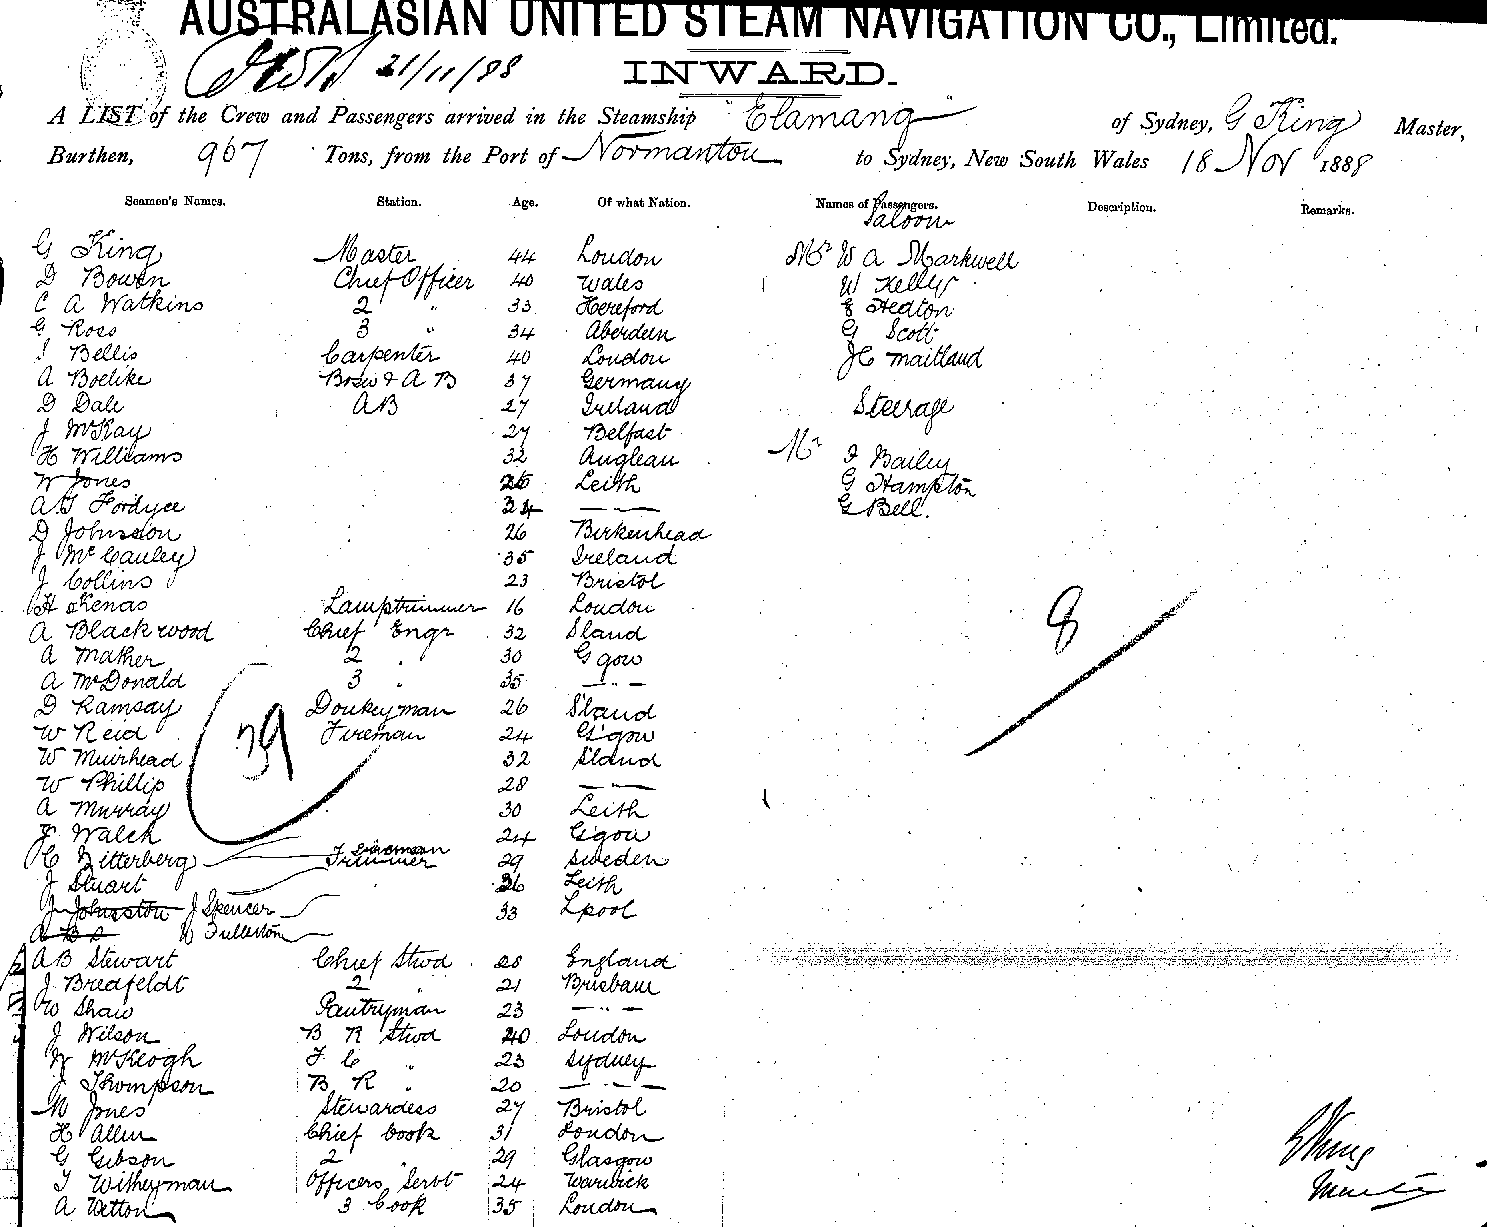 AUSTRALASIAN UNITED STEAM NAVIGATION CO., Limited.
21/11/88
INWARD.
A LIST of the Crew and Passengers arrived in the Steamship "Elamang" of Sydney, G King Master,
Burthen, 967 Tons, from the Port of Normanton to Sydney, New South Wales 18 Nov 1888
Seamen's Names. Station. Age. Of what Nation. Names of Passengers. Description. Remarks.
Saloon
G King Master 44 London Mr W A Markwell
D Bowen Chief Officer 40 Wales W Kelly
C A Watkins 2 " 33 Hereford Hedton
G Ross 3 " 34 Aberdeen G Scott
J Bellis Carpenter 40 London J C Maitland
A Boelike Bosn & A B 37 Germany
D Dale AB 27 Ireland Steerage
J McKay 27 Belfast
H Williams 32 Anglean Mr J Bailey
W Jones 26 Leith G Hampton
A G Fordyce 34 — " — G Bell.
D Johnston 26 Birkenhead
J McCauley 35 Ireland
J Collins 23 Bristol
H Lamptrimmer 16 London 8
A Blackwood Chief Engr 32 S'land
A Mather 2 " 30 G'gow
A McDonald 3 " 35 — " —
D Ramsay Donkeyman 26 S'land
W Reid Fireman 24 G'gow
39
W Muirhead 32 S'land
W Phillip 28 — " —
A Murray 30 Leith
J Walch 24 G'gow
H C Zitterberg Trimmer 29 Sweden
J Stuart 36 Leith
J Johnston J Spencer 33 Lpool
W Fullerton
A B Stewart Chief Stwd 28 England
J Bredfeldt 2 " 21 Brisbane
W Shaw Pantryman 23 — " —
J Wilson B R Stwd 20 London
W McKeogh F C " 23 Sydney
J Thompson B R " 20 — " —
M Jones Stewardess 27 Bristol
H Allen Chief Cook 31 London
G Gibson 2 " 29 Glasgow
T Witheyman Officers Servt 24 Warwick
A Tetton 3 Cook 35 London
G King
Master